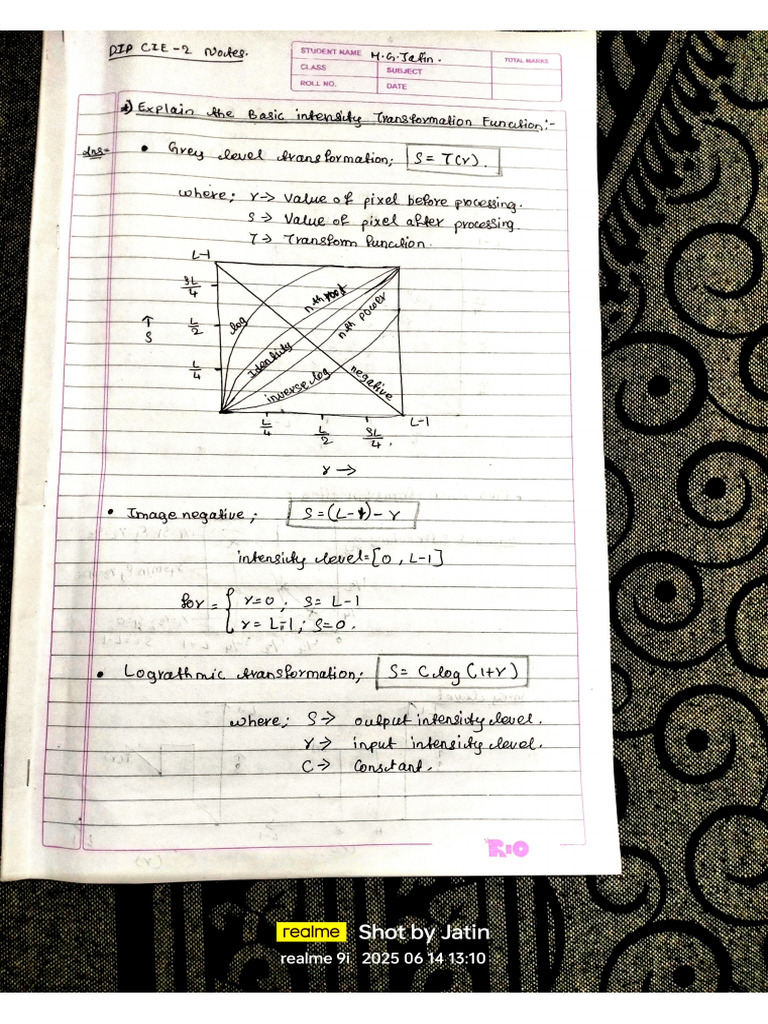 DIP CIE-2 Notes.
STUDENT NAME H.G.Jatin.
TOTAL MARKS
CLASS
SUBJECT
ROLL NO.
DATE
1) Explain the Basic intensity Transformation Function:-
Ans=
• Grey level transformation; S = T(r).
where; r → Value of pixel before processing.
S → Value of pixel after processing.
T → Transform function.
L-1
3L/4
L/2
L/4
↑
S
log
n.th root
Identity
n.th power
inverse log
negative
L/4
L/2
3L/4.
L-1
r →
• Image negative; S = (L-1) - r
intensity level = [0, L-1]
for = { r=0; S= L-1
r = L-1; S=0.
• Lograthmic transformation; S= C log (1+r)
where; S → output intensity level.
r → input intensity level.
C → Constant.
RIO
realme Shot by Jatin
realme 9i 2025 06 14 13:10